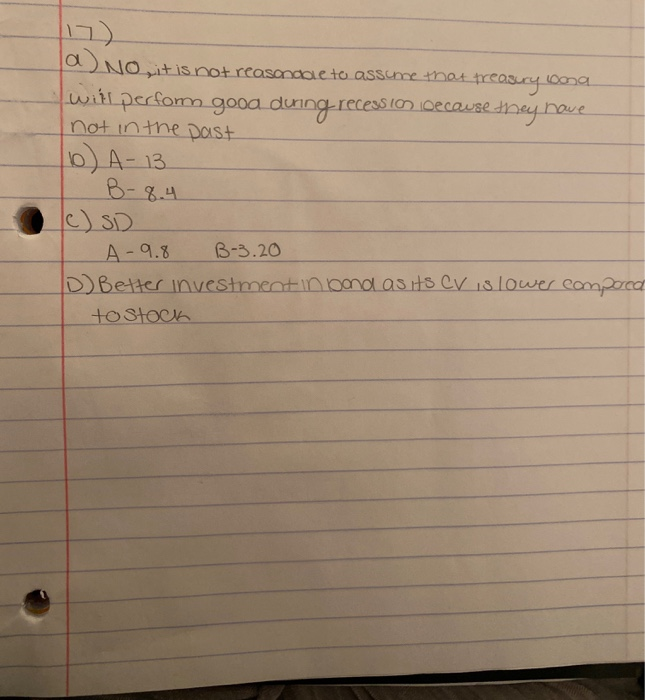 17)
a) NO, it is not reasonable to assume that treasury bond
will perform good during recession because they have
not in the past
b) A- 13
B- 8.4
c) SD
A - 9.8 B-3.20
D) Better investment in bond as its CV is lower compared
to stock